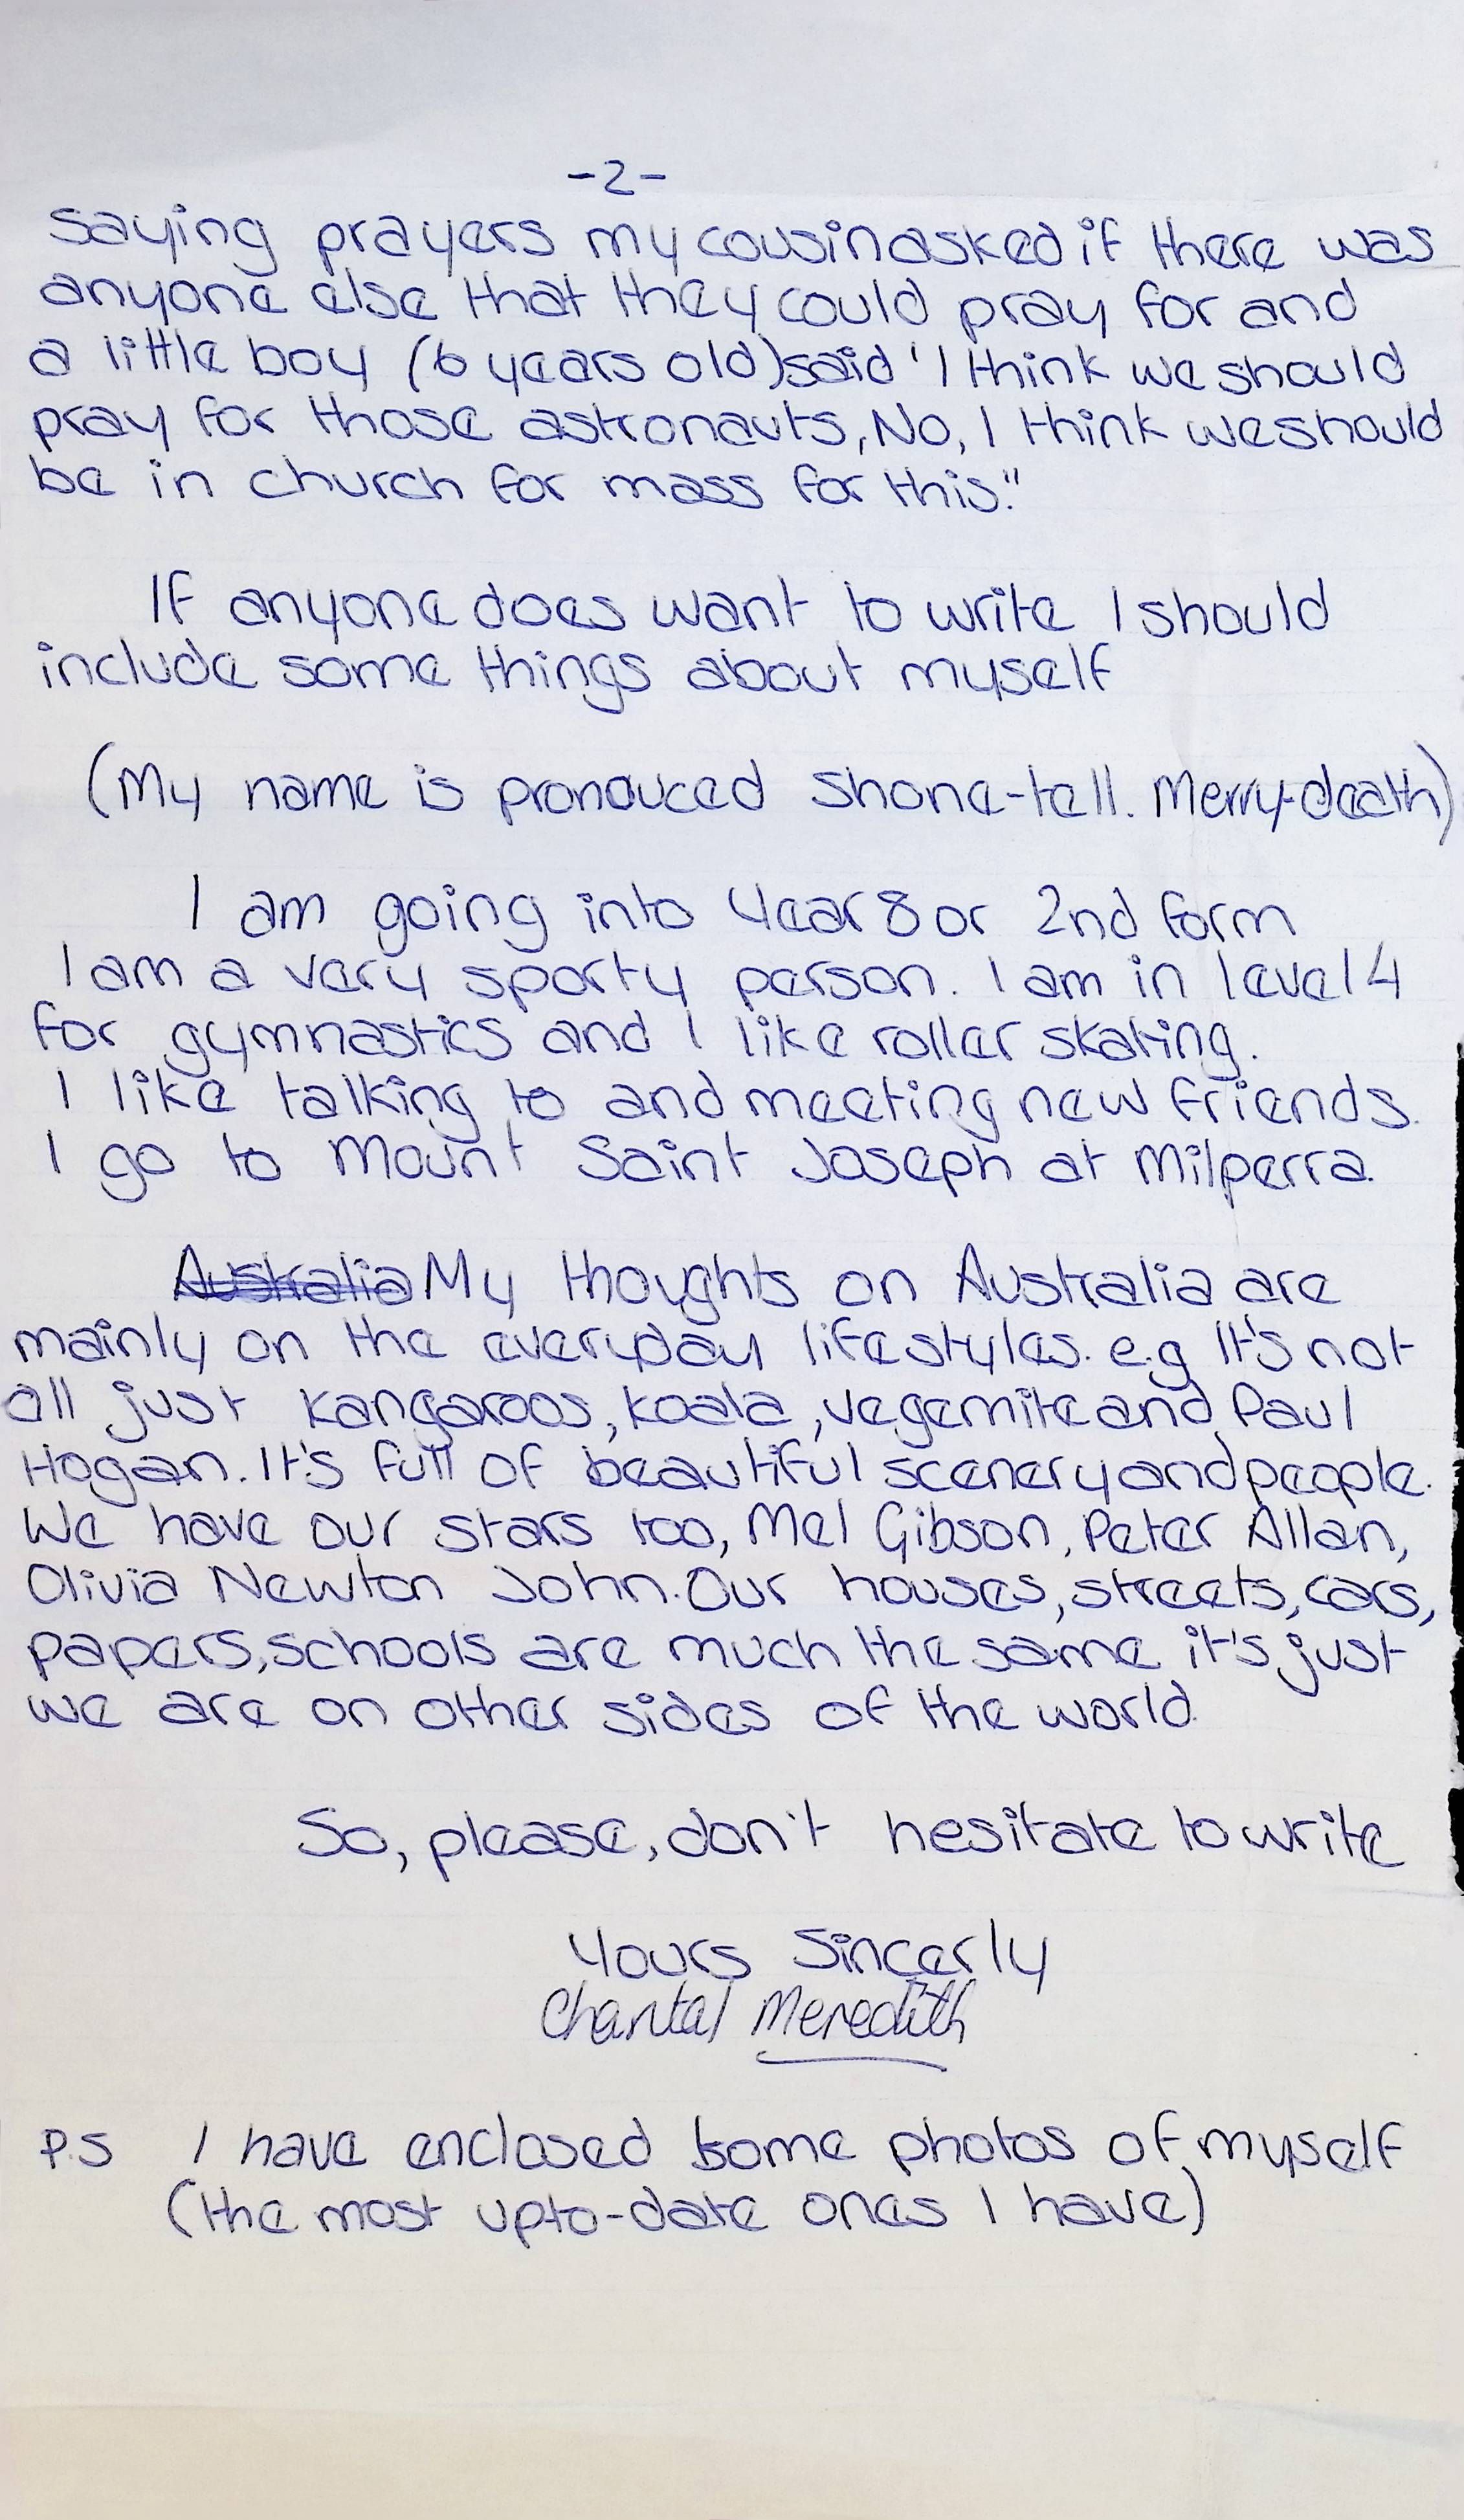 -2-
Saying prayers my cousin asked if there was
anyone else that they could pray for and
a little boy (6 years old) said 'I think we should
pray for those astronauts, No, I think we should
be in church for mass for this."
If anyone does want to write I should
include some things about myself
(My name is pronouced Shone-tell. Merry-death)
I am going into Year 8 or 2nd form
I am a very sporty person. I am in level 4
for gymnastics and I like roller skating.
I like talking to and meeting new friends.
I go to Mount Saint Joseph at Milperra.
Australia My thoughts on Australia are
mainly on the everyday lifestyles. e.g It's not
all just kangaroos, koala, vegemite and Paul
Hogan. It's full of beautiful scenery and people.
We have our stars too, Mel Gibson, Peter Allan,
Olivia Newton John. Our houses, streets, cars,
papers, schools are much the same it's just
we are on other sides of the world.
So, please, don't hesitate to write
Yours Sincerly
Chantal Meredith
P.S I have enclosed some photos of myself
(the most upto-date ones I have)